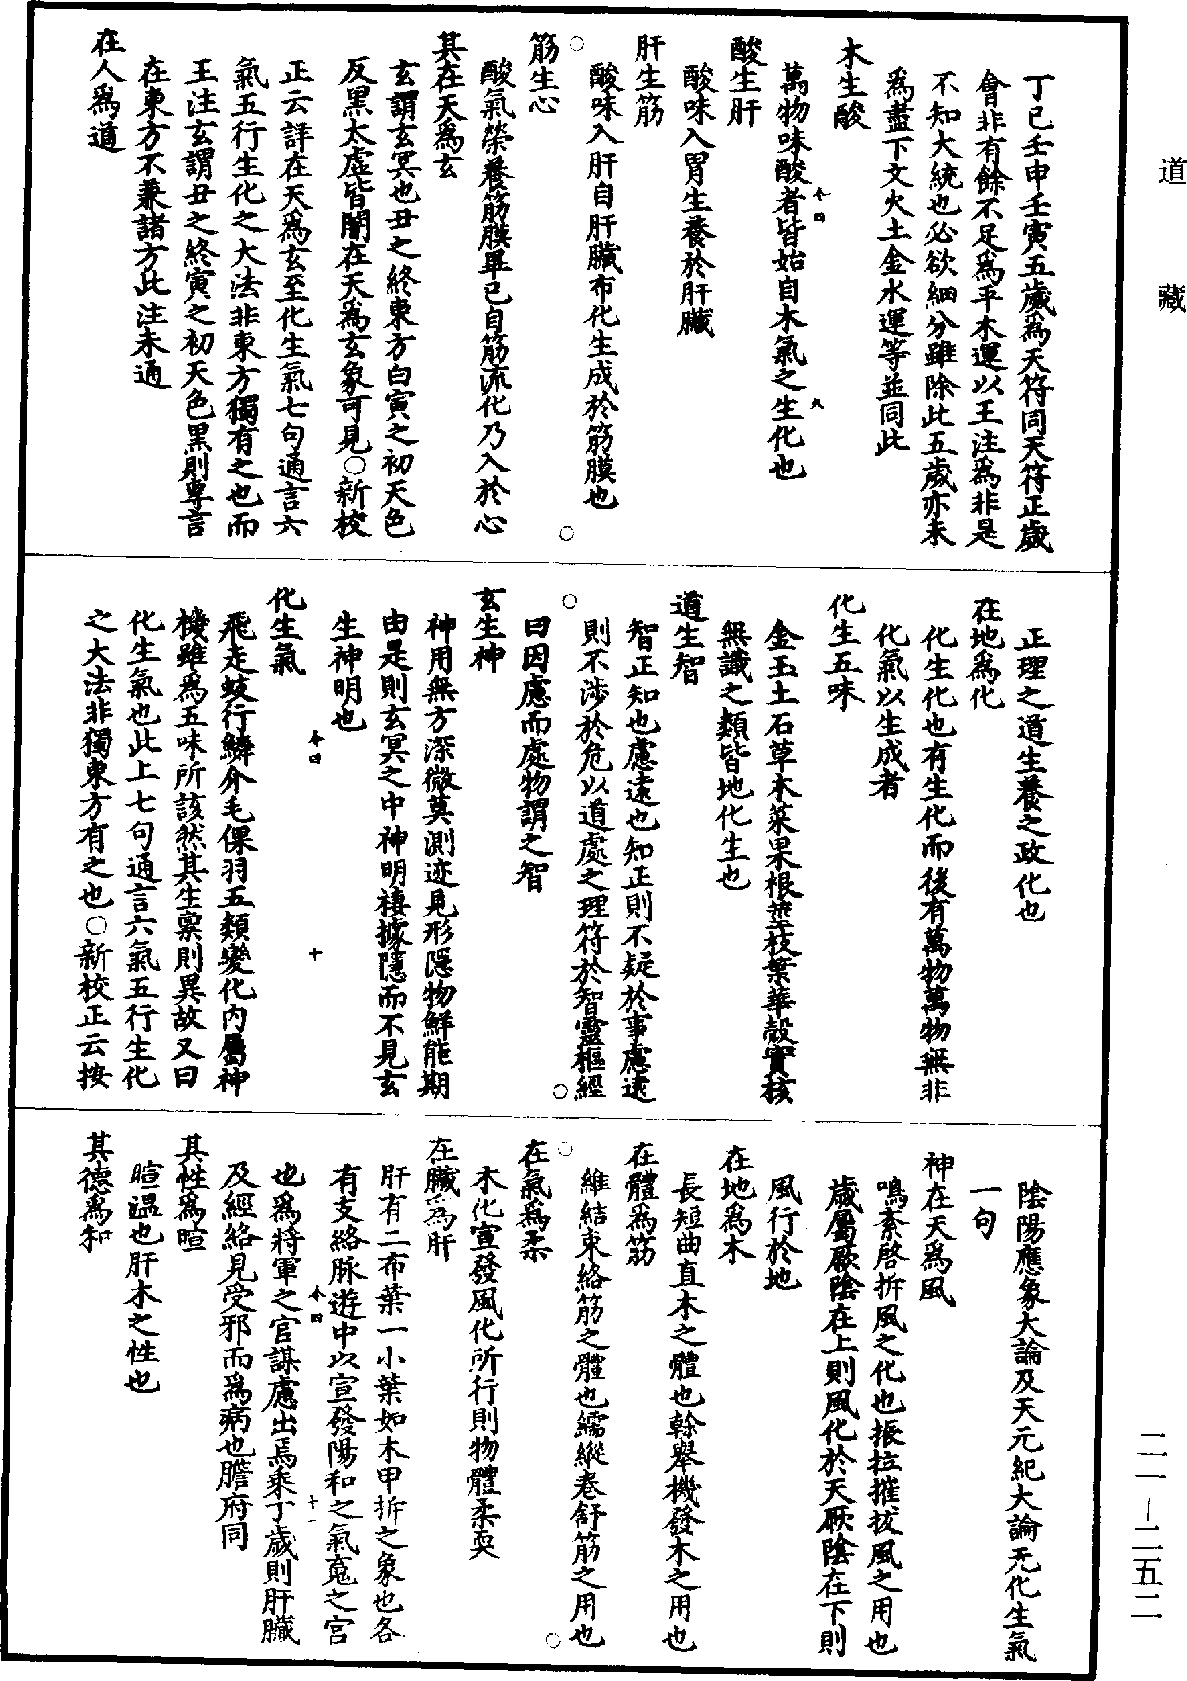 道藏
丁巳壬申壬寅五歲爲天符同天符正歲
會非有餘不足爲平木運以王注爲非是
不知大統也必欲細分雖除此五歲亦未
爲盡下文火土金水運等並同此
木生酸
萬物味酸者皆始自木氣之生化也
酸生肝
酸味入胃生養於肝臟
肝生筋
酸味入肝自肝臟布化生成於筋膜也
筋生心
酸氣榮養筋膜畢已自筋流化乃入於心
其在天爲玄
玄謂玄冥也丑之終東方白寅之初天色
反黑太虛皆闇在天爲玄象可見○新校
正云詳在天爲玄至化生氣七句通言六
氣五行生化之大法非東方獨有之也而
王注玄謂丑之終寅之初天色黑則專言
在東方不兼諸方此注未通
在人爲道
正理之道生養之政化也
在地爲化
化生化也有生化而後有萬物萬物無非
化氣以生成者
化生五味
金玉土石草木菜果根莖枝葉華殼實核
無識之類皆地化生也
道生智
智正知也慮遠也知正則不疑於事慮遠
則不涉於危以道處之理符於智靈樞經
曰因慮而處物謂之智
玄生神
神用無方深微莫測迹見形隱物鮮能期
由是則玄冥之中神明棲據隱而不見玄
生神明也
化生氣
飛走蚑行鱗介毛倮羽五類變化內屬神
機雖爲五味所該然其生稟則異故又曰
化生氣也此上七句通言六氣五行生化
之大法非獨東方有之也○新校正云按
陰陽應象大論及天元紀大論无化生氣
一句
神在天爲風
鳴紊啓拆風之化也振拉摧拔風之用也
歲屬厥陰在上則風化於天厥陰在下則
風行於地
在地爲木
長短曲直木之體也幹舉機發木之用也
在體爲筋
維結束絡筋之體也繻縱卷舒筋之用也
在氣爲柔
木化宣發風化所行則物體柔耎
在臟爲肝
肝有二布葉一小葉如木甲拆之象也各
有支絡脉遊中以宣發陽和之氣䰟之宮
也爲將軍之官謀慮出焉乘丁歲則肝臟
及經絡見受邪而爲病也膽府同
其性爲暄
暄溫也肝木之性也
其德爲和
二一－二五二